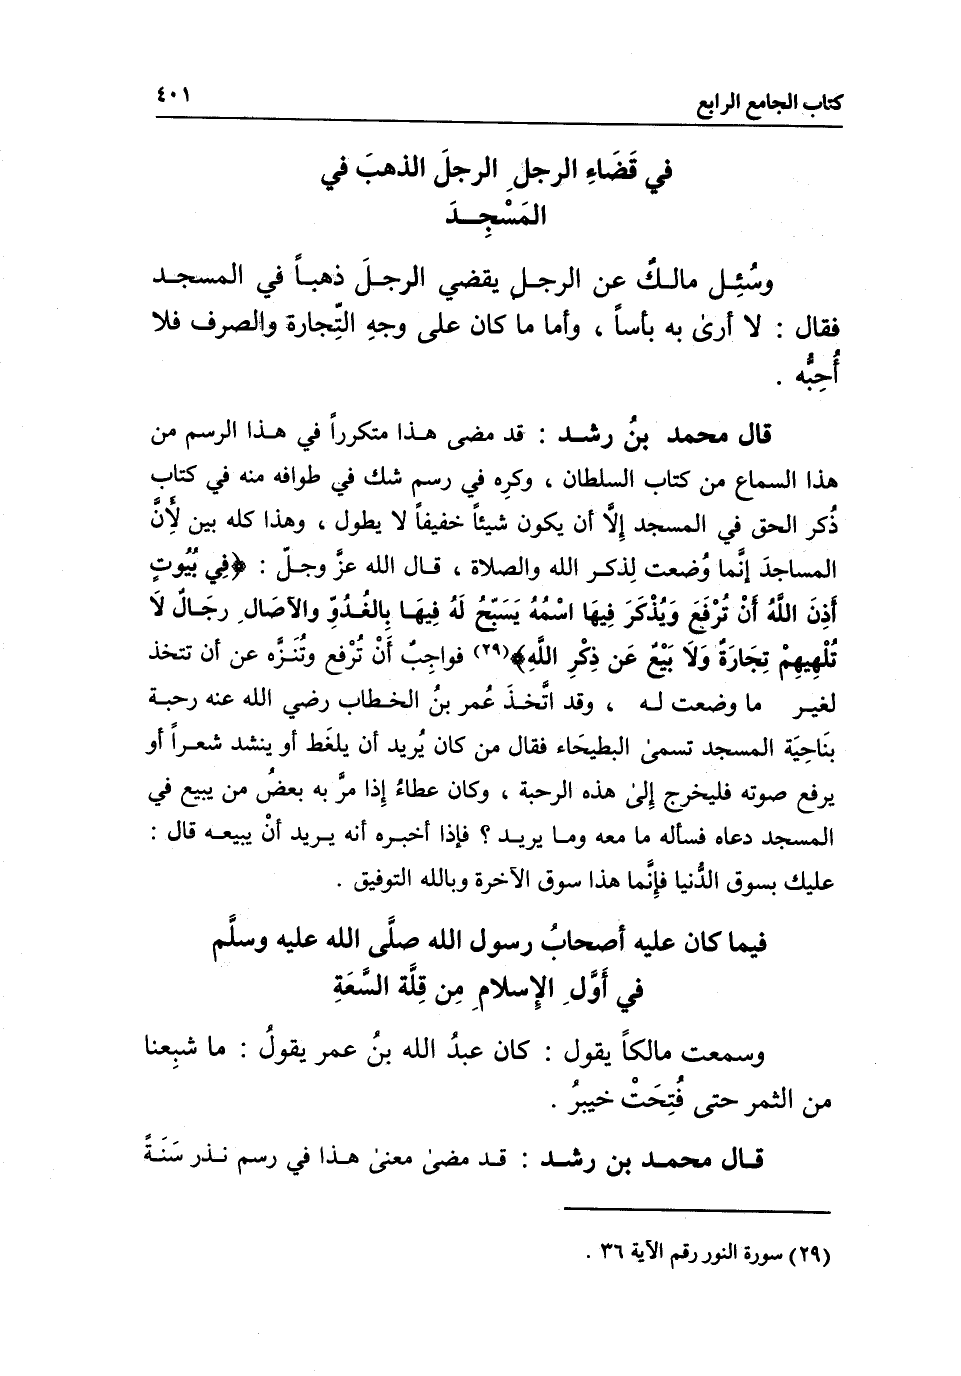 كتاب الجامع الرابع ٤٠١
في قَضَاءِ الرجلِ الرجلَ الذهبَ في
المَسْجِدَ
وسُئِل مالكٌ عن الرجلِ يقضي الرجلَ ذهباً في المسجد
فقال : لا أرىٰ به بأساً ، وأما ما كان على وجهِ التِّجارة والصرف فلا
أُحِبُّه .
قال محمد بنُ رشد : قد مضى هذا متكرراً في هذا الرسم من
هذا السماع من كتاب السلطان ، وكرِه في رسم شك في طوافه منه في كتاب
ذُكر الحق في المسجد إلَّا أن يكون شيئاً خفيفاً لا يطول ، وهذا كله بين لأِنَّ
المساجدَ إنَّما وُضعت لِذكر الله والصلاة ، قال الله عزَّ وجلّ : ﴿فِي بُيُوتٍ
أَذِنَ اللَّهُ أَنْ تُرْفَعَ وَيُذْكَرَ فِيهَا اسْمُهُ يَسَبّحُ لَهُ فِيهَا بِالغُدُوِّ والآصَالِ رجَالٌ لَا
تُلْهِيهِمْ تِجَارَةٌ وَلَا بَيْعٌ عَن ذِكْرِ اللَّهِ﴾(٢٩) فواجِبٌ أَنْ تُرْفع وتُنَزَّه عن أن تتخذ
لغير ما وضعت له ، وقد اتَّخذَ عُمر بنُ الخطاب رضي الله عنه رحبة
بنَاحِيَة المسجد تسمىٰ البطيحَاء فقال من كان يُريد أن يلغَط أو ينشد شعراً أو
يرفع صوته فليخرج إلىٰ هذه الرحبة ، وكان عطاءُ إذا مرَّ به بعضُ من يبيع في
المسجد دعاه فسأله ما معه وما يريد ؟ فإذا أخبره أنه يريد أنْ يبيعه قال :
عليك بسوق الدُّنيا فإنَّما هذا سوق الآخرة وبالله التوفيق .
فيما كان عليه أصحابُ رسول الله صلَّى الله عليه وسلَّم
في أَوَّلِ الإسلامِ مِن قِلَّة السَّعَةِ
وسمعت مالكاً يقول : كان عبدُ الله بنُ عمر يقولُ : ما شبِعنا
من الثمر حتى فُتِحَتْ خيبرُ .
قال محمد بن رشد : قد مضىٰ معنىٰ هذا في رسم نذر سَنَةً
(٢٩) سورة النور رقم الآية ٣٦ .